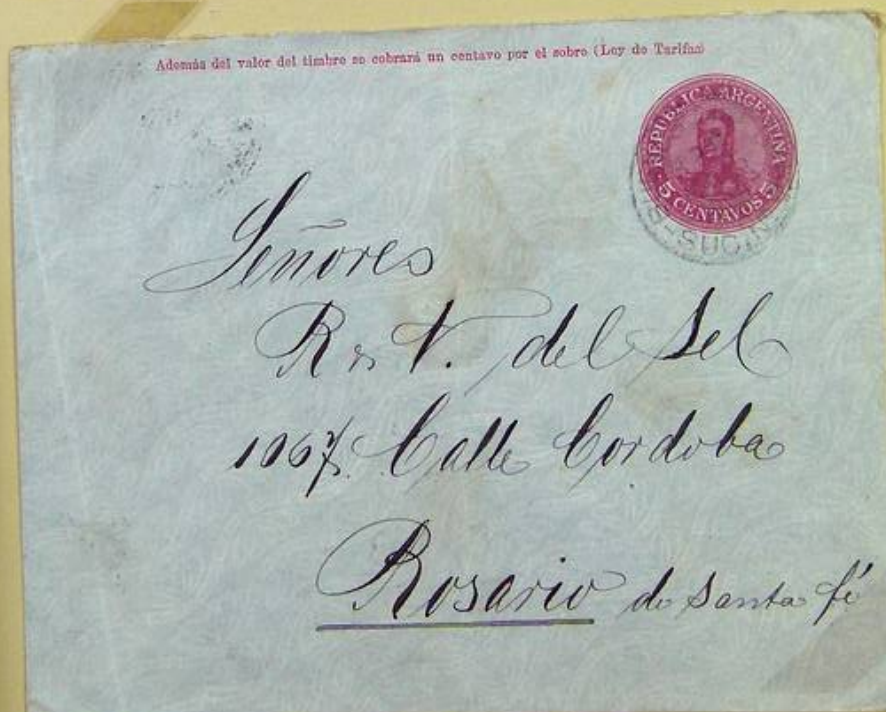 Además del valor del timbre se cobrará un centavo por el sobre (Ley de Tarifas)
REPUBLICA ARGENTINA
5 CENTAVOS 5
SUC.
Señores
R. V. del Sel
1067 Calle Cordoba
Rosario de Santa fé